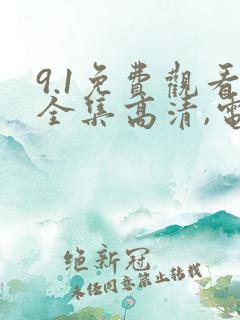 9.1免費觀看
全集高清,電
绝新冠
未经同意禁止转载